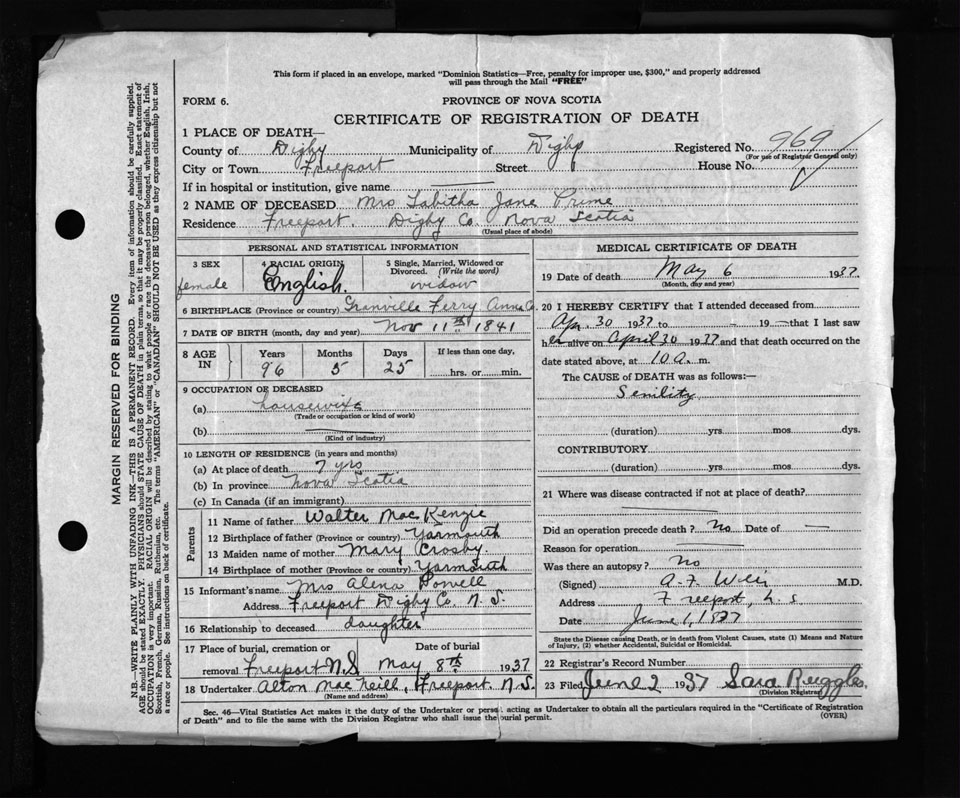 This form if placed in an envelope, marked "Dominion Statistics—Free, penalty for improper use, $300," and properly addressed
will pass through the Mail "FREE"
FORM 6.
PROVINCE OF NOVA SCOTIA
CERTIFICATE OF REGISTRATION OF DEATH
1 PLACE OF DEATH—
County of Digby Municipality of Digby Registered No. 969
(For use of Registrar General only)
City or Town Freeport Street House No.
If in hospital or institution, give name
2 NAME OF DECEASED Mrs Tabitha Jane Prime
Residence Freeport. Digby Co. Nova Scotia
(Usual place of abode)
PERSONAL AND STATISTICAL INFORMATION
3 SEX 4 RACIAL ORIGIN 5 Single, Married, Widowed or
Divorced. (Write the word)
female English. widow
6 BIRTHPLACE (Province or country) Granville Ferry Anna Co.
7 DATE OF BIRTH (month, day and year) Nov 11th 1841
8 AGE IN Years Months Days If less than one day,
96 5 25 hrs. or min.
9 OCCUPATION OF DECEASED
(a) housewife
(Trade or occupation or kind of work)
(b)
(Kind of industry)
10 LENGTH OF RESIDENCE (in years and months)
(a) At place of death 7 yrs
(b) In province Nova Scotia
(c) In Canada (if an immigrant)
Parents
11 Name of father Walter MacKenzie
12 Birthplace of father (Province or country) Yarmouth
13 Maiden name of mother Mary Crosby
14 Birthplace of mother (Province or country) Yarmouth
15 Informant's name Mrs Alena Powell
Address Freeport Digby Co. N.S.
16 Relationship to deceased daughter
17 Place of burial, cremation or Date of burial
removal Freeport N.S. May 8th 1937
18 Undertaker Alton MacNeill, Freeport N.S.
(Name and address)
MEDICAL CERTIFICATE OF DEATH
19 Date of death May 6 1937.
(Month, day and year)
20 I HEREBY CERTIFY that I attended deceased from
Apr. 30 1937 to — 19— that I last saw
her alive on April 30 1937 and that death occurred on the
date stated above, at 10 a. m.
The CAUSE OF DEATH was as follows:—
Senility
(duration) yrs. mos. dys.
CONTRIBUTORY
(duration) yrs. mos. dys.
21 Where was disease contracted if not at place of death?
Did an operation precede death? No Date of —
Reason for operation
Was there an autopsy? No
(Signed) A.F. Weir M.D.
Address Freeport, N.S
Date June 1, 1937
State the Disease causing Death, or in death from Violent Causes, state (1) Means and Nature
of Injury, (2) whether Accidental, Suicidal or Homicidal.
22 Registrar's Record Number
23 Filed June 2 1937 Sara Ruggles.
(Division Registrar)
Sec. 46—Vital Statistics Act makes it the duty of the Undertaker or person acting as Undertaker to obtain all the particulars required in the "Certificate of Registration
of Death" and to file the same with the Division Registrar who shall issue the burial permit.
(OVER)
MARGIN RESERVED FOR BINDING
N.B.—WRITE PLAINLY WITH UNFADING INK—THIS IS A PERMANENT RECORD. Every item of information should be carefully supplied.
AGE should be stated EXACTLY. PHYSICIANS should STATE CAUSE OF DEATH in plain terms, so that it may be properly classified. Exact statement of
OCCUPATION is very important. RACIAL ORIGIN will be described by stating to what people or race the deceased person belonged, whether English, Irish,
Scottish, French, German, Russian, Ruthenian, etc. The terms "AMERICAN" or "CANADIAN" SHOULD NOT BE USED as they express citizenship but not
a race or people. See instructions on back of certificate.